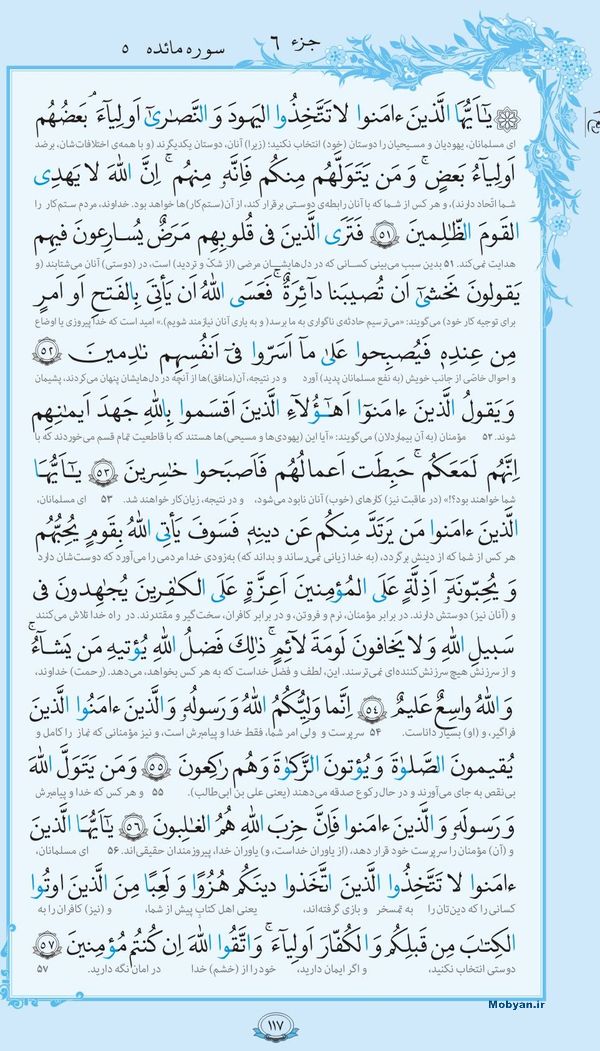 جزء ۶
سوره مائده ۵
يـٰٓاَيُّهَا الَّذينَ ءامَنوا لا تَتَّخِذُوا اليَهودَ وَ النَّصارىٰٓ اَولِيآءَ ۘ بَعضُهُم
ای مسلمانان، یهودیان و مسیحیان را دوستان (خود) انتخاب نکنید؛ (زیرا) آنان، دوستان یکدیگرند (و با همه‌ی اختلافات‌شان، برضد
اَولِيآءُ بَعضٍ ۚ وَ مَن يَتَوَلَّهُم مِنكُم فَاِنَّهو مِنهُم ۗ اِنَّ اللهَ لا يَهدِى
شما اتّحاد دارند)، و هر کس از شما که با آنان رابطه‌ی دوستی برقرار کند، از آن(ستم‌کار)ها خواهد بود. خداوند، مردم ستم‌کار را
القَومَ الظّٰلِمينَ ۵۱ فَتَرَى الَّذينَ فى قُلوبِهِم مَرَضٌ يُسارِعونَ فيهِم
هدایت نمی‌کند. ۵۱ بدین سبب می‌بینی کسانی که در دل‌هایشان مرضی (از شک و تردید) است، در (دوستی) آنان می‌شتابند (و
يَقولونَ نَخشىٰٓ اَن تُصيبَنا دآئِرَةٌ ۚ فَعَسَى اللهُ اَن يَأتِىَ بِالفَتحِ اَو اَمرٍ
برای توجیه کار خود) می‌گویند: «می‌ترسیم حادثه‌ی ناگواری به ما برسد( و به یاری آنان نیازمند شویم).» امید است که خدا پیروزی یا اوضاع
مِن عِندِهٖ فَيُصبِحوا عَلىٰ مآ اَسَرّوا فىٓ اَنفُسِهِم نٰدِمينَ ۵۲
و احوال خاصّی از جانب خویش (به نفع مسلمانان پدید) آورد و در نتیجه، آن(منافق)ها از آنچه در دل‌هایشان پنهان می‌کردند، پشیمان
وَ يَقولُ الَّذينَ ءامَنوٓا اَهٰٓؤُلآءِ الَّذينَ اَقسَموا بِاللهِ جَهدَ اَيمٰنِهِم
شوند. ۵۲ مؤمنان (به آن بیماردلان) می‌گویند: «آیا این (یهودی‌ها و مسیحی)ها هستند که با قاطعیت تمام قسم می‌خوردند که با
اِنَّهُم لَمَعَكُم ۚ حَبِطَت اَعمالُهُم فَاَصبَحوا خٰسِرينَ ۵۳ يـٰٓاَيُّهَا
شما خواهند بود؟!» (در عاقبت نیز) کارهای (خوب) آنان نابود می‌شود، و در نتیجه، زیان‌کار خواهند شد. ۵۳ ای مسلمانان،
الَّذينَ ءامَنوا مَن يَرتَدَّ مِنكُم عَن دينِهٖ فَسَوفَ يَأتِى اللهُ بِقَومٍ يُحِبُّهُم
هر کس از شما که از دینش برگردد، (به خدا زیانی نمی‌رساند و بداند که) به‌زودی خدا مردمی را می‌آورد که دوست‌شان دارد
وَ يُحِبّونَهٓو اَذِلَّةٍ عَلَى المُؤمِنينَ اَعِزَّةٍ عَلَى الكٰفِرينَ يُجٰهِدونَ فى
و (آنان نیز) دوستش دارند. در برابر مؤمنان، نرم و فروتن، و در برابر کافران، سخت‌گیر و مقتدرند. در راه خدا تلاش می‌کنند
سَبيلِ اللهِ وَ لا يَخافونَ لَومَةَ لآئِمٍ ۚ ذٰلِكَ فَضلُ اللهِ يُؤتيهِ مَن يَشآءُ ۚ
و از سرزنش هیچ سرزنش‌کننده‌ای نمی‌ترسند. این، لطف و فضل خداست که به هر کس بخواهد، می‌دهد. (رحمت) خداوند،
وَ اللهُ واسِعٌ عَليمٌ ۵۴ اِنَّما وَلِيُّكُمُ اللهُ وَ رَسولُهو وَ الَّذينَ ءامَنُوا الَّذينَ
فراگیر، و (او) بسیار داناست. ۵۴ سرپرست و ولی امر شما، فقط خدا و پیامبرش است، و نیز مؤمنانی که نماز را کامل و
يُقيمونَ الصَّلوٰةَ وَ يُؤتونَ الزَّكوٰةَ وَ هُم رٰكِعونَ ۵۵ وَ مَن يَتَوَلَّ اللهَ
بی‌نقص به جای می‌آورند و در حال رکوع صدقه می‌دهند (یعنی علی بن ابی‌طالب). ۵۵ و هر کس که خدا و پیامبرش
وَ رَسولَهو وَ الَّذينَ ءامَنوا فَاِنَّ حِزبَ اللهِ هُمُ الغٰلِبونَ ۵۶ يـٰٓاَيُّهَا الَّذينَ
و (آن) مؤمنان را سرپرست خود قرار دهد، (از یاوران خداست، و) یاوران خدا، پیروزمندان حقیقی‌اند. ۵۶ ای مسلمانان،
ءامَنوا لا تَتَّخِذُوا الَّذينَ اتَّخَذوا دينَكُم هُزُوًا وَ لَعِبًا مِنَ الَّذينَ اوتُوا
کسانی را که دین‌تان را به تمسخر و بازی گرفته‌اند، یعنی اهل کتابِ پیش از شما، و (نیز) کافران را به
الكِتٰبَ مِن قَبلِكُم وَ الكُفّارَ اَولِيآءَ ۚ وَ اتَّقُوا اللهَ اِن كُنتُم مُؤمِنينَ ۵۷
دوستی انتخاب نکنید، و اگر ایمان دارید، خود را از (خشم) خدا در امان نگه دارید. ۵۷
Mobyan.ir
۱۱۷